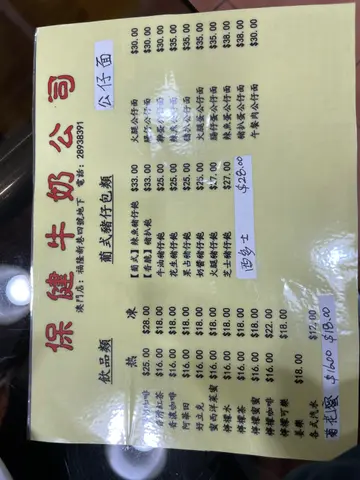 保健牛奶公司
澳門店：福隆新巷四號地下 電話：28938391
飲品類
熱 凍
$25.00 $28.00
香滑紅茶 $16.00 $18.00
香濃咖啡 $16.00 $18.00
阿華田 $16.00 $18.00
好立克 $16.00 $18.00
蜜西洋菜蜜 $16.00 $18.00
檸檬水 $16.00 $18.00
檸檬茶 $16.00 $18.00
檸檬蜜 $16.00 $18.00
檸檬咖啡 $16.00 $22.00
檸檬可樂 $18.00
$18.00
各式汽水 $12.00
菊花蜜 $16.00 $18.00
葡式豬仔包類
【葡式】辣魚豬仔飽 $33.00
【香脆】豬扒飽 $33.00
牛油豬仔飽 $25.00
花生豬仔飽 $25.00
果占豬仔飽 $25.00
奶醬豬仔飽 $25.00
火腿豬仔飽 $27.00
芝士豬仔飽 $27.00
西多士 $28.00
公仔面
火腿公仔面 $30.00
腸仔公仔面 $30.00
公仔面 $30.00
辣魚公仔面 $35.00
豬扒公仔面 $35.00
火腿蛋公仔面 $35.00
腸仔蛋公仔面 $35.00
辣魚蛋公仔面 $38.00
豬扒蛋公仔面 $38.00
午餐肉公仔面 $30.00